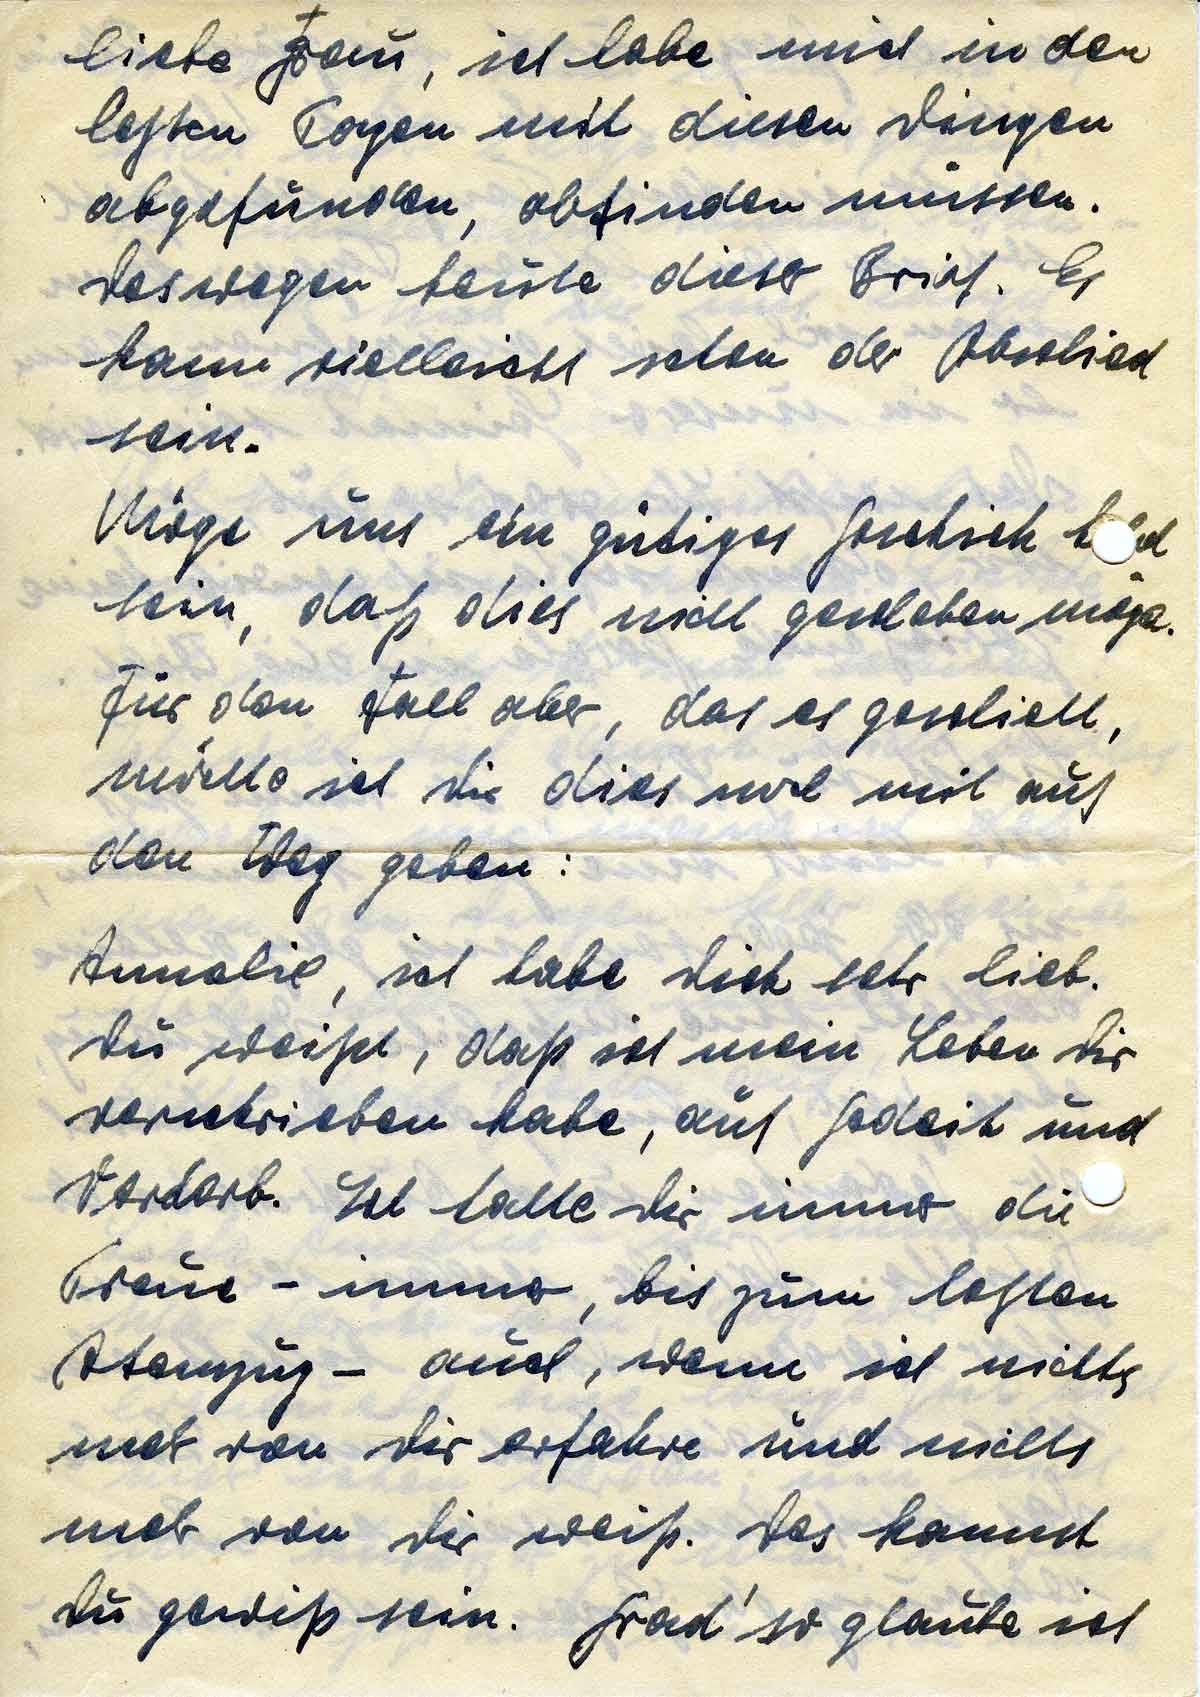 liebe Frau, ich habe mich in den
letzten Tagen mit diesen Dingen
abgefunden, abfinden müssen.
Deswegen heute dieser Brief. Es
kann vielleicht schon der Abschied
sein.
Möge uns ein gütiges Geschick hold
sein, daß dies nicht geschehen möge.
Für den Fall aber, das es geschieht,
möchte ich Dir dies noch mit auf
den Weg geben:
Annelie, ich habe Dich sehr lieb.
Du weißt, daß ich mein Leben Dir
verschrieben habe, auf Gedeih und
Verderb. Ich halte Dir immer die
Treue – immer, bis zum letzten
Atemzug – auch, wenn ich nichts
mehr von Dir erfahre und nichts
mehr von Dir weiß. Des kannst
Du gewiß sein. Grad' so glaube ich